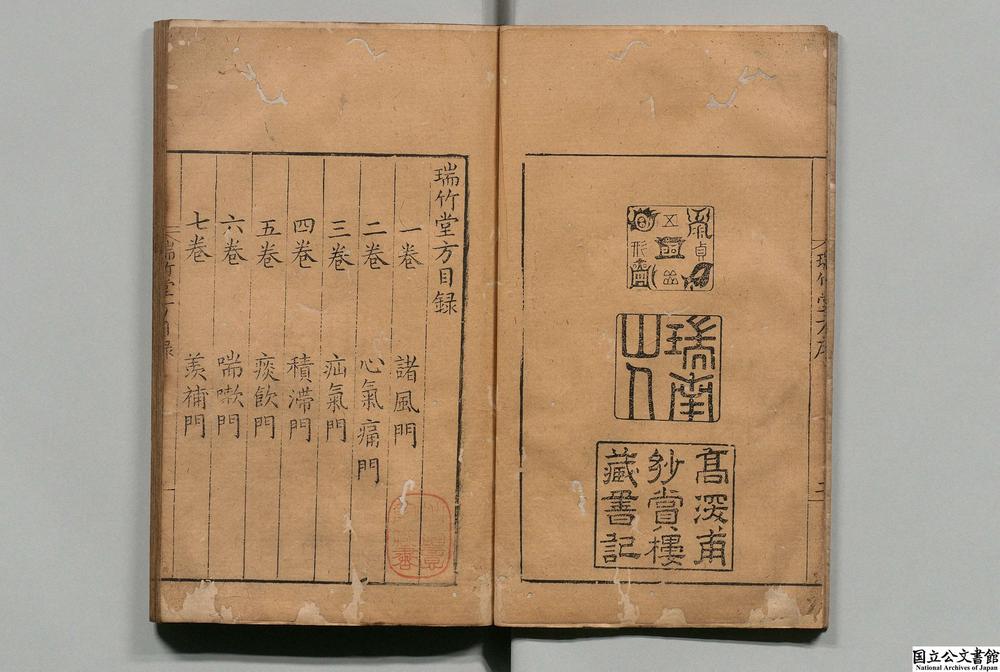 瑞南
山人
高深甫
妙賞樓
藏書記
瑞竹堂方目録
一卷 諸風門
二卷 心氣痛門
三卷 疝氣門
四卷 積滯門
五卷 痰飲門
六卷 喘嗽門
七卷 羨補門
国立公文書館
National Archives of Japan